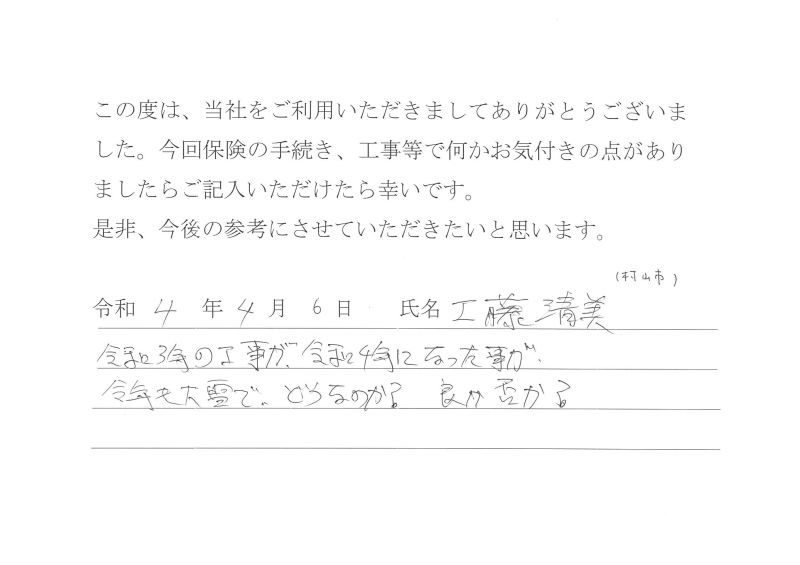 この度は、当社をご利用いただきましてありがとうございま
した。今回保険の手続き、工事等で何かお気付きの点があり
ましたらご記入いただけたら幸いです。
是非、今後の参考にさせていただきたいと思います。
(村山市)
令和 4 年 4 月 6 日 氏名 工藤清美
令和3年の工事が、令和4年になった事が、
今年も大雪で、どうなのか? 良か否か?